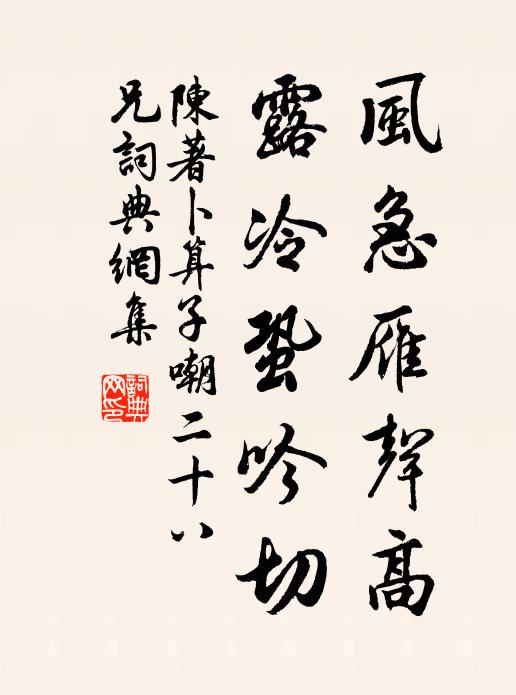 風急雁聲高
露冷蛩吟切
陳著卜算子嘲二十八
兄詞典網集
詞典網印